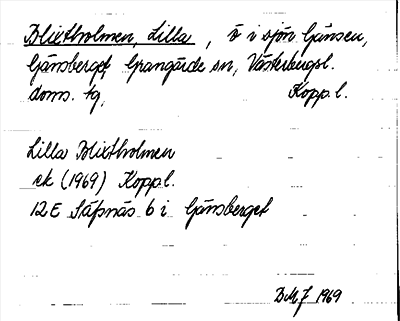 Blixtholmen, Lilla, ö i sjön Ljusen,
Ljänsberget, Grangärde sn, Västerbergsl.
doms. tg, Kopp.l.
Lilla Blixtholmen
ek (1969) Kopp.l.
12E Säfsnäs 6 i Ljänsberget
1969